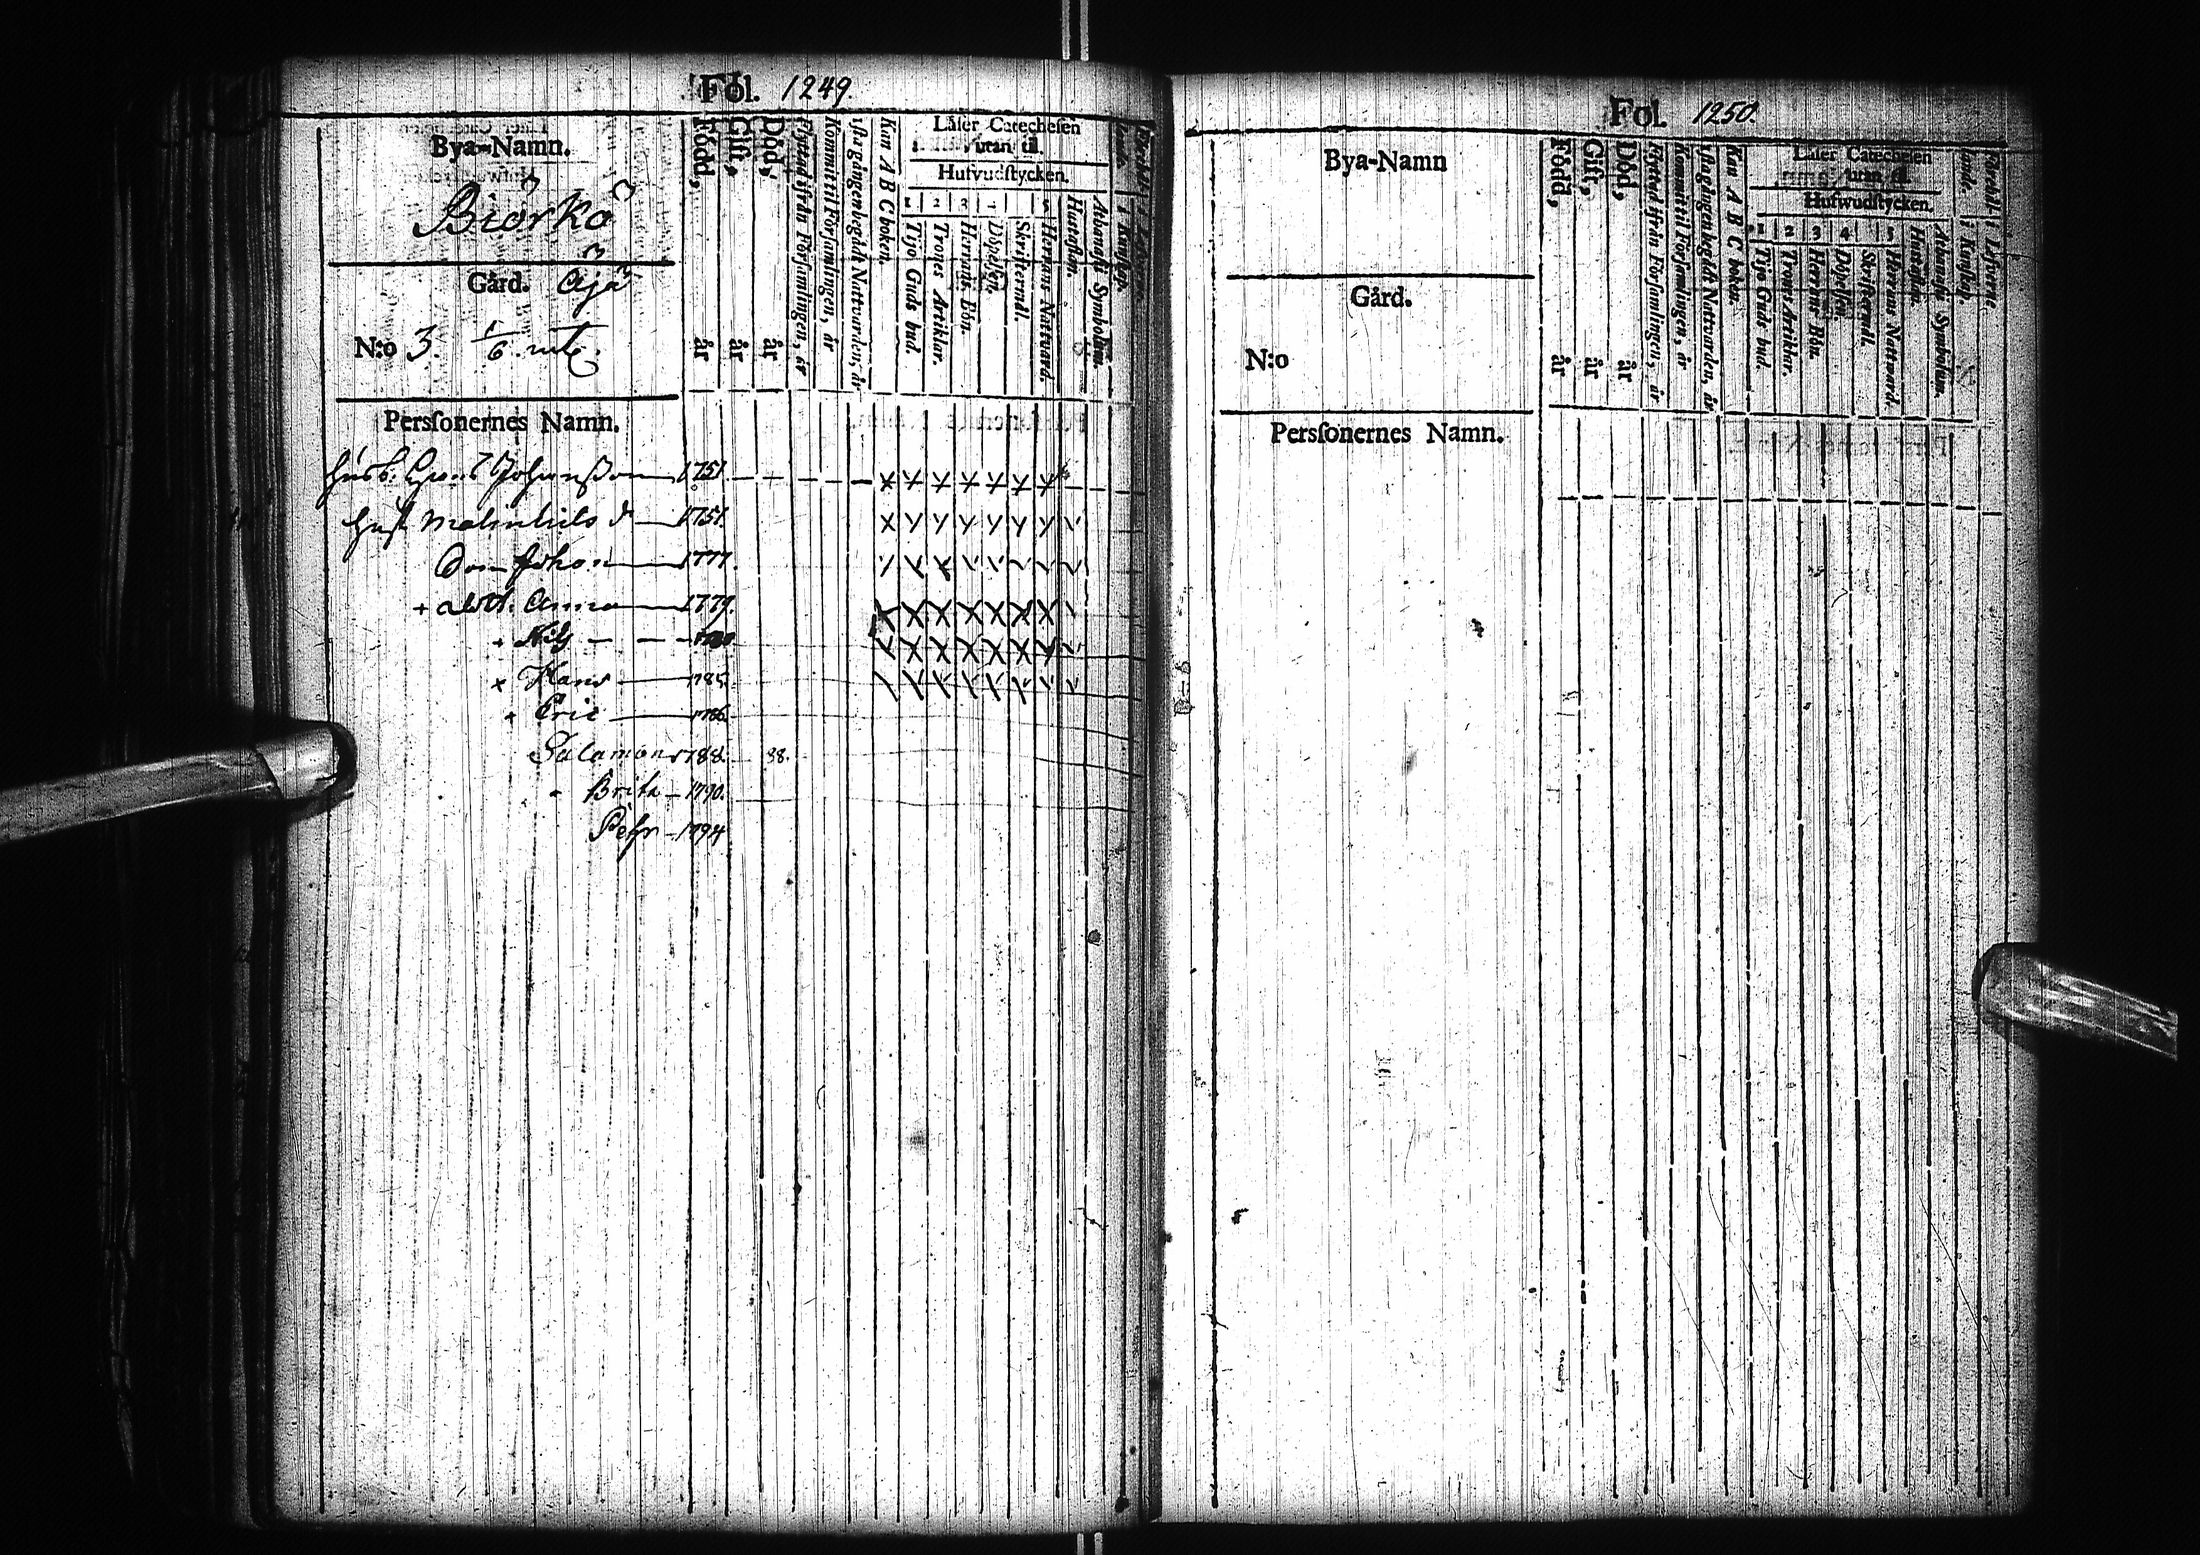 Fol. 1249
Bya-Namn.
Biörkö
Gård. Åjå
N:o 3. 1/6.
Persſonernes Namn.
Född, år
Giſt, år
Död, år
Flyttad ifrån Förſamlingen, år
Kommit til Förſamlingen, år
Kan A B C boken.
Låſer Catecheſen
utan til.
Hufvudſtycken.
1 2 3 4 5
Tijo Guds bud.
Trones Artiklar.
Herrans Bön.
Döpelſen.
Skriftermål.
Herrans Nattvard.
Huſtaflan.
Athanaſii Symbolum.
i Kunſkap.
Johanſson 1751
Huſt Malin Nils d 1751.
Son Johan 1777.
+ dott. Anna 1779.
Nils
x Hans 1785.
Eric 1786.
Salamon 1788. 88.
Brita 1790.
Pehr 1794
Fol. 1250.
Bya-Namn
Gård.
N:o
Persſonernes Namn.
Född, år
Giſt, år
Död, år
Flyttad ifrån Förſamlingen, år
Kommit til Förſamlingen, år
Kan A B C boken.
Låſer Catecheſen
utan til.
Hufwudſtycken.
1 2 3 4 5
Tijo Guds bud.
Trones Artiklar.
Herrans Bön.
Döpelſen.
Skriftermål.
Herrans Nattward.
Huſtaflan.
Athanaſii Symbolum.
i Kunſkap.
i Lefverne.